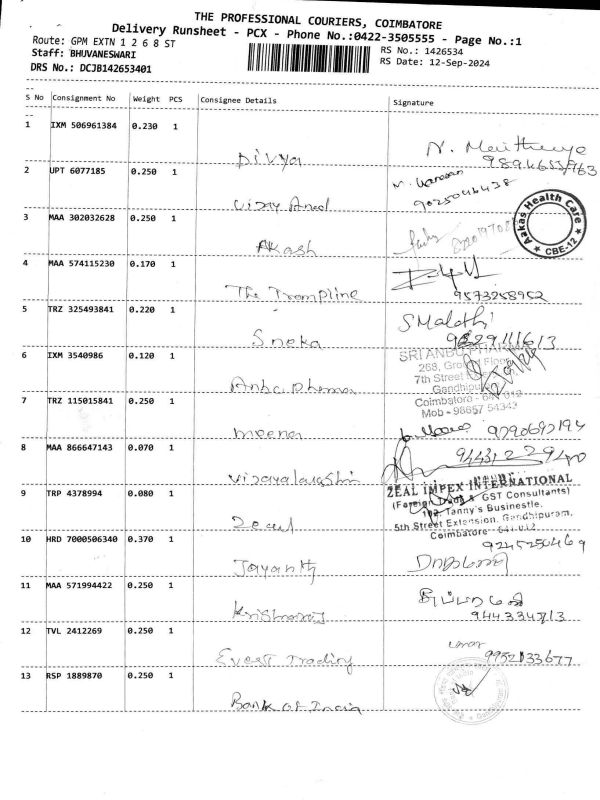 THE PROFESSIONAL COURIERS, COIMBATORE
Delivery Runsheet - PCX - Phone No.:0422-3505555 - Page No.:1
Route: GPM EXTN 1 2 6 8 ST
RS No.: 1426534
Staff: BHUVANESWARI
RS Date: 12-Sep-2024
DRS No.: DCJB142653401
S No Consignment No Weight PCS Consignee Details Signature
1 IXM 506961384 0.230 1
Divya
2 UPT 6077185 0.250 1
9025046438
Vijay Anand
3 MAA 302032628 0.250 1
Aakas Health Care
* CBE-12 *
Akash
4 MAA 574115230 0.170 1
The Trampline
9573258952
5 TRZ 325493841 0.220 1
S Malathi
Sneka
6 IXM 3540986 0.120 1
SRI ANBU PHARMA
268, Ground Floor
7th Street
Gandhipuram
Coimbatore - 641 012
Mob - 98657 54343
Anbu Pharma
7 TRZ 115015841 0.250 1
meena
9790692194
8 MAA 866647143 0.070 1
Vijayalakshmi
9 TRP 4378994 0.080 1
ZEAL IMPEX INTERNATIONAL
(Foreign Trade & GST Consultants)
102, Tanny's Businestle,
5th Street Extension, Gandhipuram,
Coimbatore - 641 012
Zeal
10 HRD 7000506340 0.370 1
9245250469
Jayanthi
11 MAA 571994422 0.250 1
Krishnaraj
9443347713
12 TVL 2412269 0.250 1
9952133677
Everst Trading
13 RSP 1889870 0.250 1
Bank of India